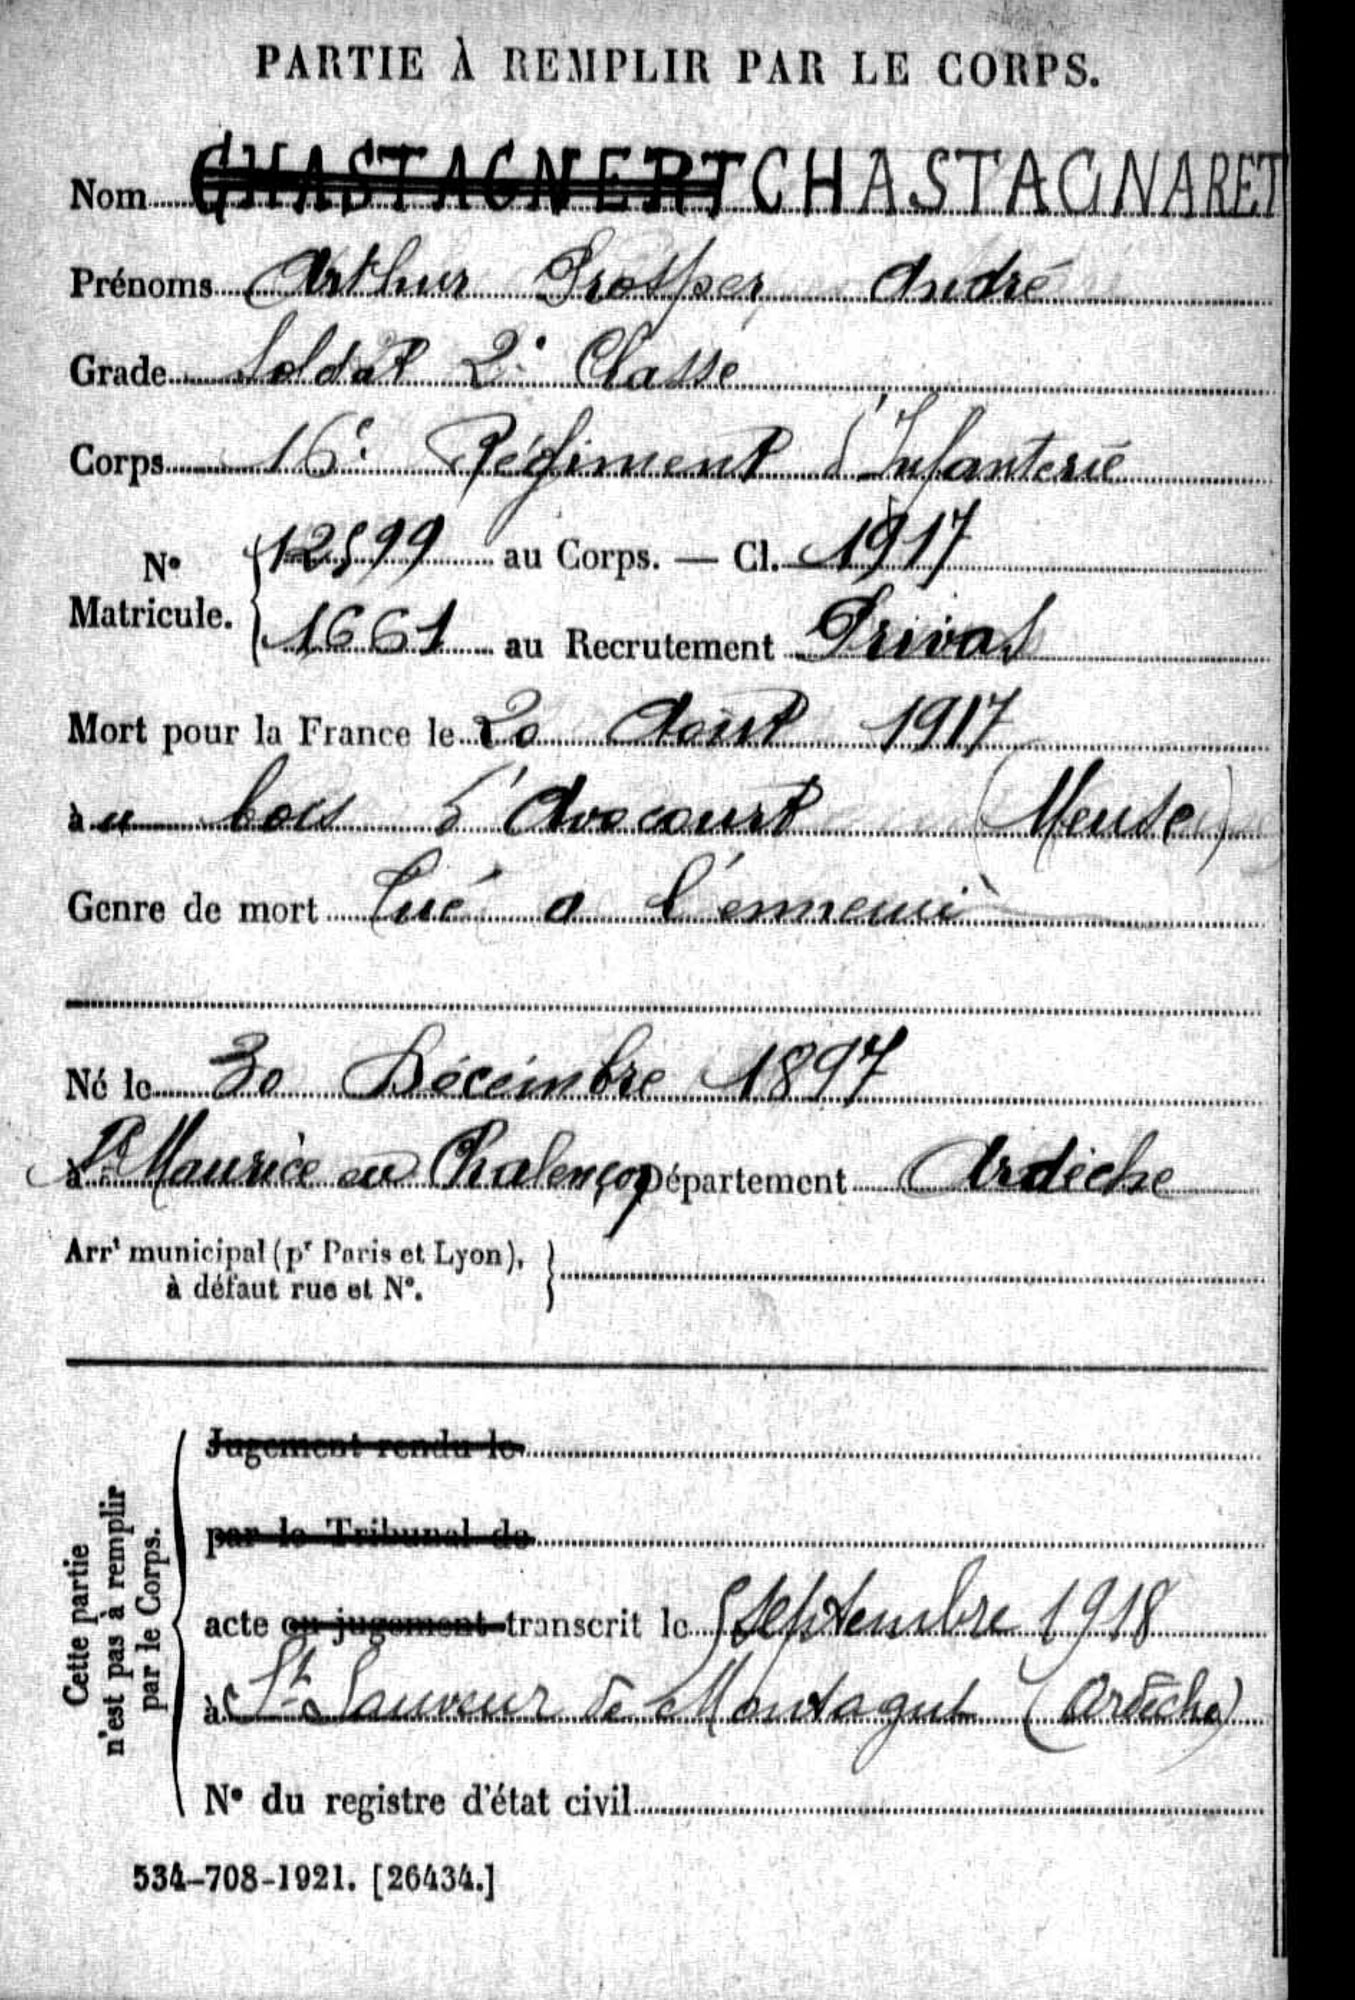 PARTIE À REMPLIR PAR LE CORPS.
Nom CHASTAGNERT CHASTAGNARET
Prénoms Arthur Prosper André
Grade Soldat 2e Classe
Corps 16e Régiment d'Infanterie
N° Matricule. 12599 au Corps. — Cl. 1917
1661 au Recrutement Privas
Mort pour la France le 20 Août 1917
au bois d'Avocourt (Meuse)
Genre de mort Tué a l'ennemi
Né le 30 Décembre 1897
à St Maurice en Chalençon Département Ardèche
Arrt municipal (pr Paris et Lyon),
à défaut rue et N°.
Cette partie
n'est pas à remplir
par le Corps.
Jugement rendu le
par le Tribunal de
acte ou jugement transcrit le 5 septembre 1918
à St Sauveur de Montagut (Ardèche)
N° du registre d'état civil
534-708-1921. [26434.]